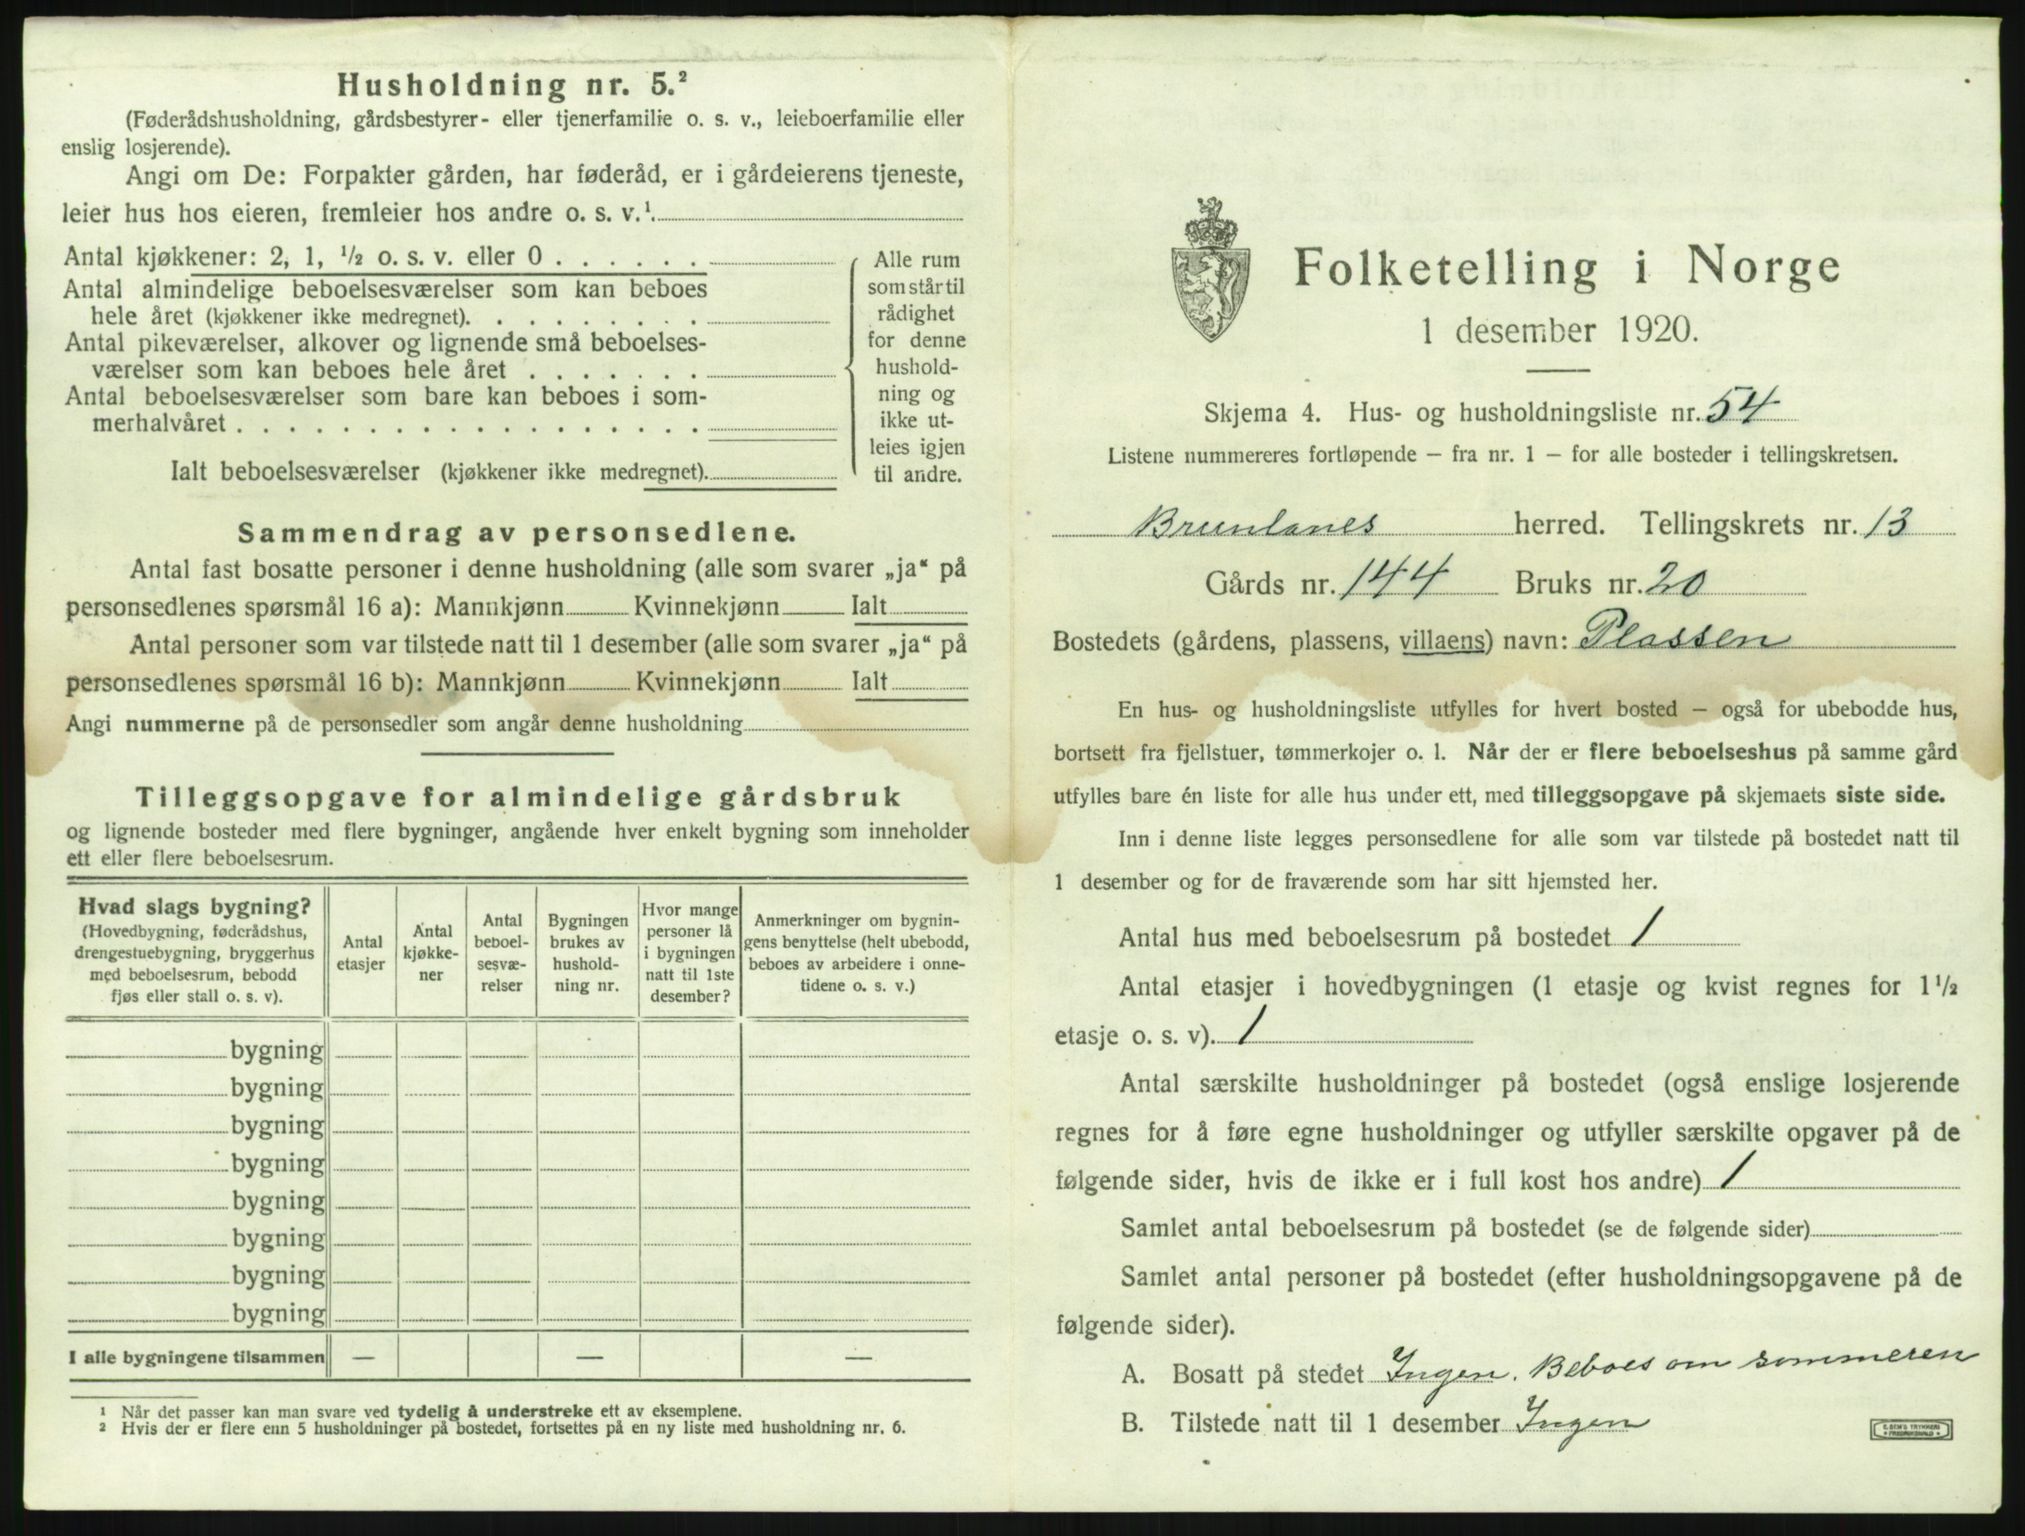 Husholdning nr. 5.²
(Føderådshusholdning, gårdsbestyrer- eller tjenerfamilie o. s. v., leieboerfamilie eller
enslig losjerende).
Angi om De: Forpakter gården, har føderåd, er i gårdeierens tjeneste,
leier hus hos eieren, fremleier hos andre o. s. v.¹.
Antal kjøkkener: 2, 1, ½ o. s. v. eller 0 . . . . . .
Antal almindelige beboelsesværelser som kan beboes
hele året (kjøkkener ikke medregnet). . . . . . . . .
Antal pikeværelser, alkover og lignende små beboelses-
værelser som kan beboes hele året . . . . . . .
Antal beboelsesværelser som bare kan beboes i som-
merhalvåret . . . . . . . . . . . . . . . . . .
Ialt beboelsesværelser (kjøkkener ikke medregnet).
Alle rum
som står til
rådighet
for denne
hushold-
ning og
ikke ut-
leies igjen
til andre.
Sammendrag av personsedlene.
Antal fast bosatte personer i denne husholdning (alle som svarer „ja“ på
personsedlenes spørsmål 16 a): Mannkjønn Kvinnekjønn Ialt
Antal personer som var tilstede natt til 1 desember (alle som svarer „ja“ på
personsedlenes spørsmål 16 b): Mannkjønn Kvinnekjønn Ialt
Angi nummerne på de personsedler som angår denne husholdning
Tilleggsopgave for almindelige gårdsbruk
og lignende bosteder med flere bygninger, angående hver enkelt bygning som inneholder
ett eller flere beboelsesrum.
Hvad slags bygning?
(Hovedbygning, føderådshus,
drengestuebygning, bryggerhus
med beboelsesrum, bebodd
fjøs eller stall o. s. v).
Antal
etasjer
Antal
kjøkke-
ner
Antal
beboel-
sesvæ-
relser
Bygningen
brukes av
hushold-
ning nr.
Hvor mange
personer lå
i bygningen
natt til 1ste
desember?
Anmerkninger om bygnin-
gens benyttelse (helt ubebodd,
beboes av arbeidere i onne-
tidene o. s. v.)
bygning
bygning
bygning
bygning
bygning
bygning
bygning
bygning
I alle bygningene tilsammen — — —
¹ Når det passer kan man svare ved tydelig å understreke ett av eksemplene.
² Hvis der er flere enn 5 husholdninger på bostedet, fortsettes på en ny liste med husholdning nr. 6.
Folketelling i Norge
1 desember 1920.
Skjema 4. Hus- og husholdningsliste nr. 54
Listene nummereres fortløpende – fra nr. 1 – for alle bosteder i tellingskretsen.
Brunlanes herred. Tellingskrets nr. 13
Gårds nr. 144 Bruks nr. 20
Bostedets (gårdens, plassens, villaens) navn: Plassen
En hus- og husholdningsliste utfylles for hvert bosted – også for ubebodde hus,
bortsett fra fjellstuer, tømmerkojer o. l. Når der er flere beboelseshus på samme gård
utfylles bare én liste for alle hus under ett, med tilleggsopgave på skjemaets siste side.
Inn i denne liste legges personsedlene for alle som var tilstede på bostedet natt til
1 desember og for de fraværende som har sitt hjemsted her.
Antal hus med beboelsesrum på bostedet 1
Antal etasjer i hovedbygningen (1 etasje og kvist regnes for 1½
etasje o. s. v). 1
Antal særskilte husholdninger på bostedet (også enslige losjerende
regnes for å føre egne husholdninger og utfyller særskilte opgaver på de
følgende sider, hvis de ikke er i full kost hos andre) 1
Samlet antal beboelsesrum på bostedet (se de følgende sider)
Samlet antal personer på bostedet (efter husholdningsopgavene på de
følgende sider).
A. Bosatt på stedet Ingen. Beboes om sommeren
B. Tilstede natt til 1 desember Ingen